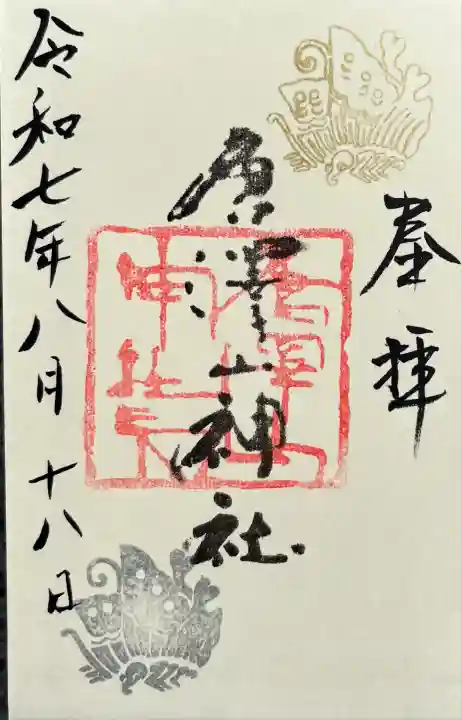 登拝
唐澤山神社
令和七年八月十八日